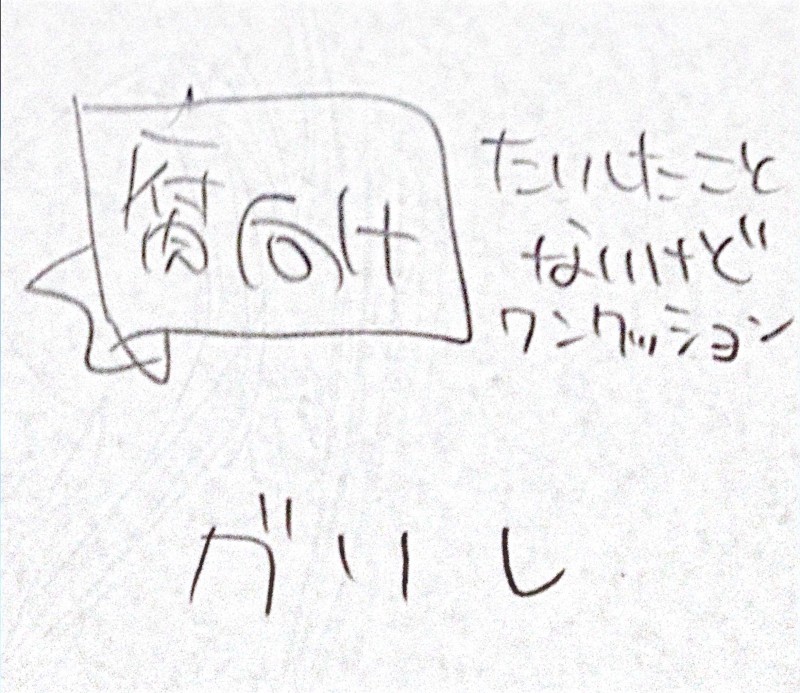 腐向け
たいしたこと
ないけど
ワンクッション
ガリレ